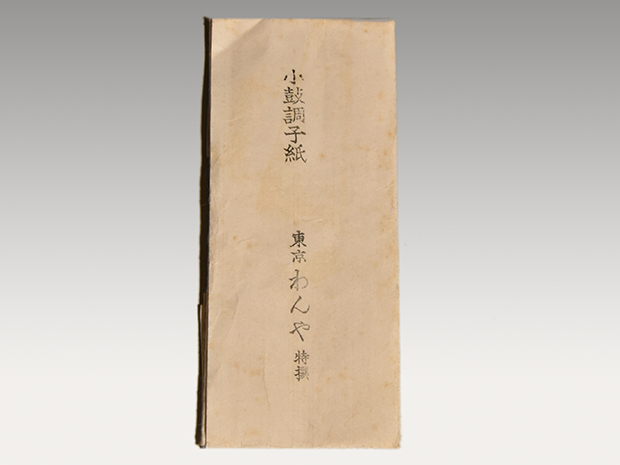 小鼓調子紙
東京わんや特撰